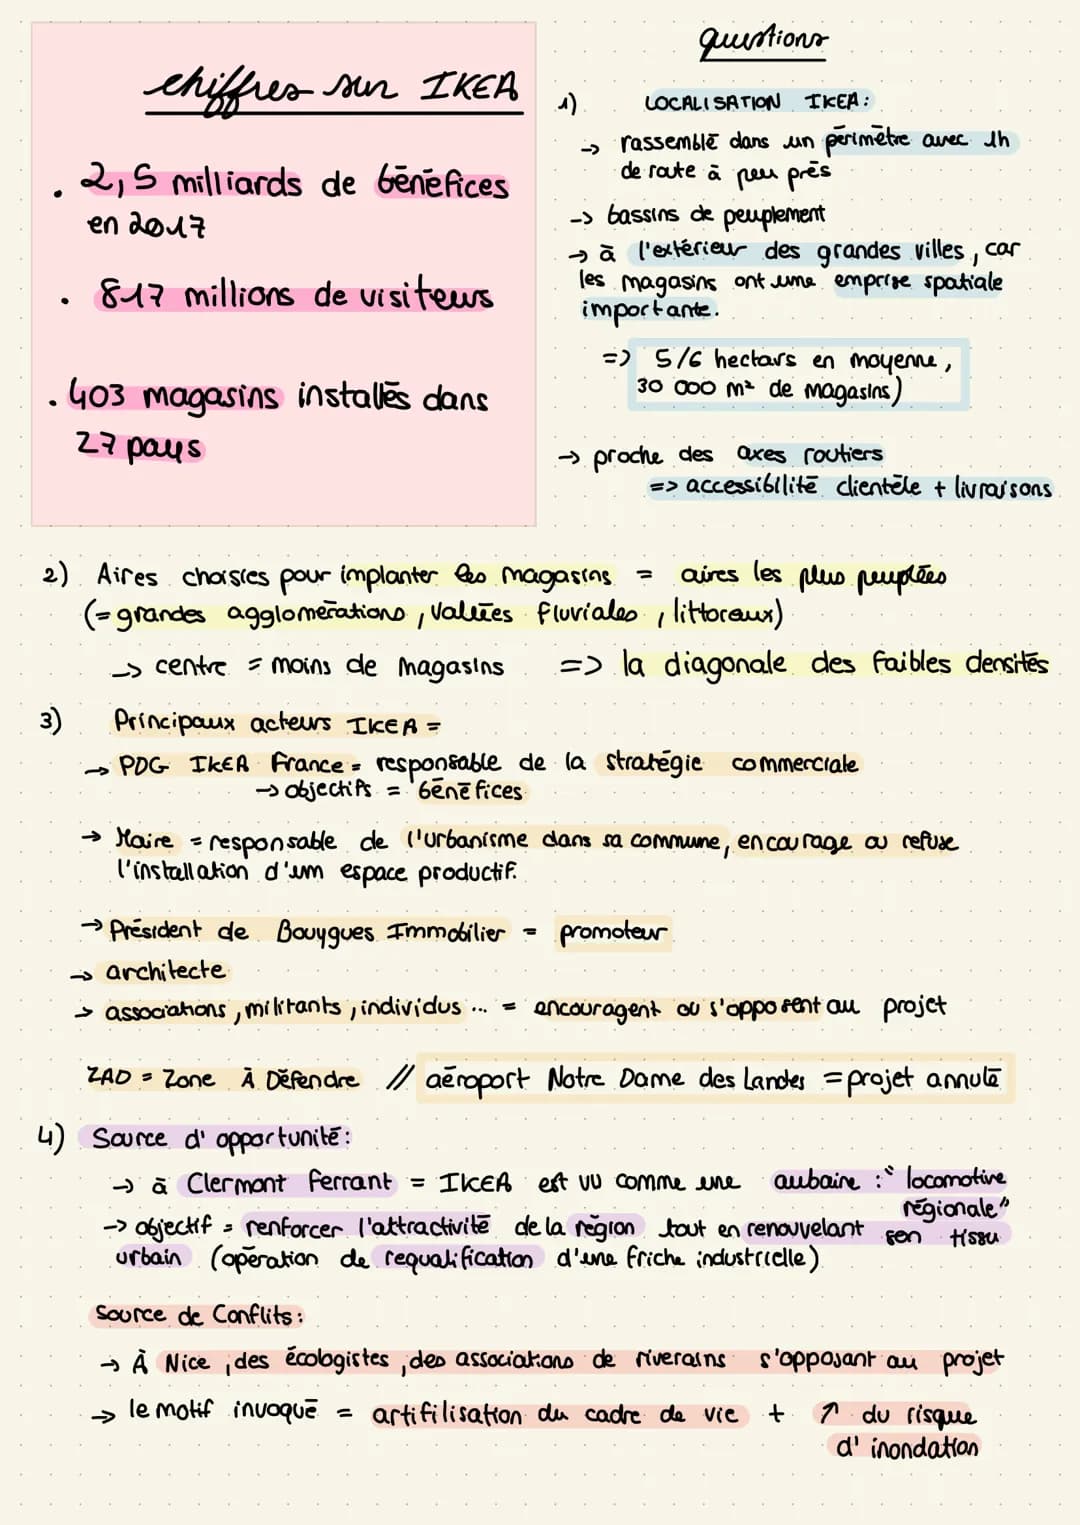 chiffres sur IKEA
. 2,5 milliards de bénéfices
en 2017
. 817 millions de visiteurs
. 403 magasins installés dans
27 pays
questions
1) LOCALISATION IKEA :
→ rassemblé dans un périmètre avec 1h
de route à peu près
-> bassins de peuplement
→ à l'extérieur des grandes villes, car
les magasins ont une emprise spatiale
importante.
=> 5/6 hectars en moyenne,
30 000 m² de magasins)
→ proche des axes routiers
=> accessibilité clientèle + livraisons
2) Aires choisies pour implanter les magasins = aires les plus peuplées
(= grandes agglomérations, vallées fluviales, littoraux)
→ centre = moins de magasins => la diagonale des faibles densités
3) Principaux acteurs IKEA =
→ PDG IKEA France = responsable de la stratégie commerciale
→ objectifs = bénéfices
→ Maire = responsable de l'urbanisme dans sa commune, encourage ou refuse
l'installation d'um espace productif.
→ Président de Bouygues Immobilier = promoteur
→ architecte
→ associations, militants, individus ... = encouragent ou s'opposent au projet
ZAD = Zone À Défendre // aéroport Notre Dame des Landes = projet annulé
4) Source d'opportunité :
→ à Clermont Ferrant = IKEA est vu comme une aubaine : "locomotive
régionale"
-> objectif = renforcer l'attractivité de la région tout en renouvelant son tissu
urbain (opération de requalification d'une friche industrielle)
Source de Conflits :
→ À Nice, des écologistes, des associations de riverains s'opposant au projet
→ le motif invoqué = artifilisation du cadre de vie + ↗ du risque
d'inondation